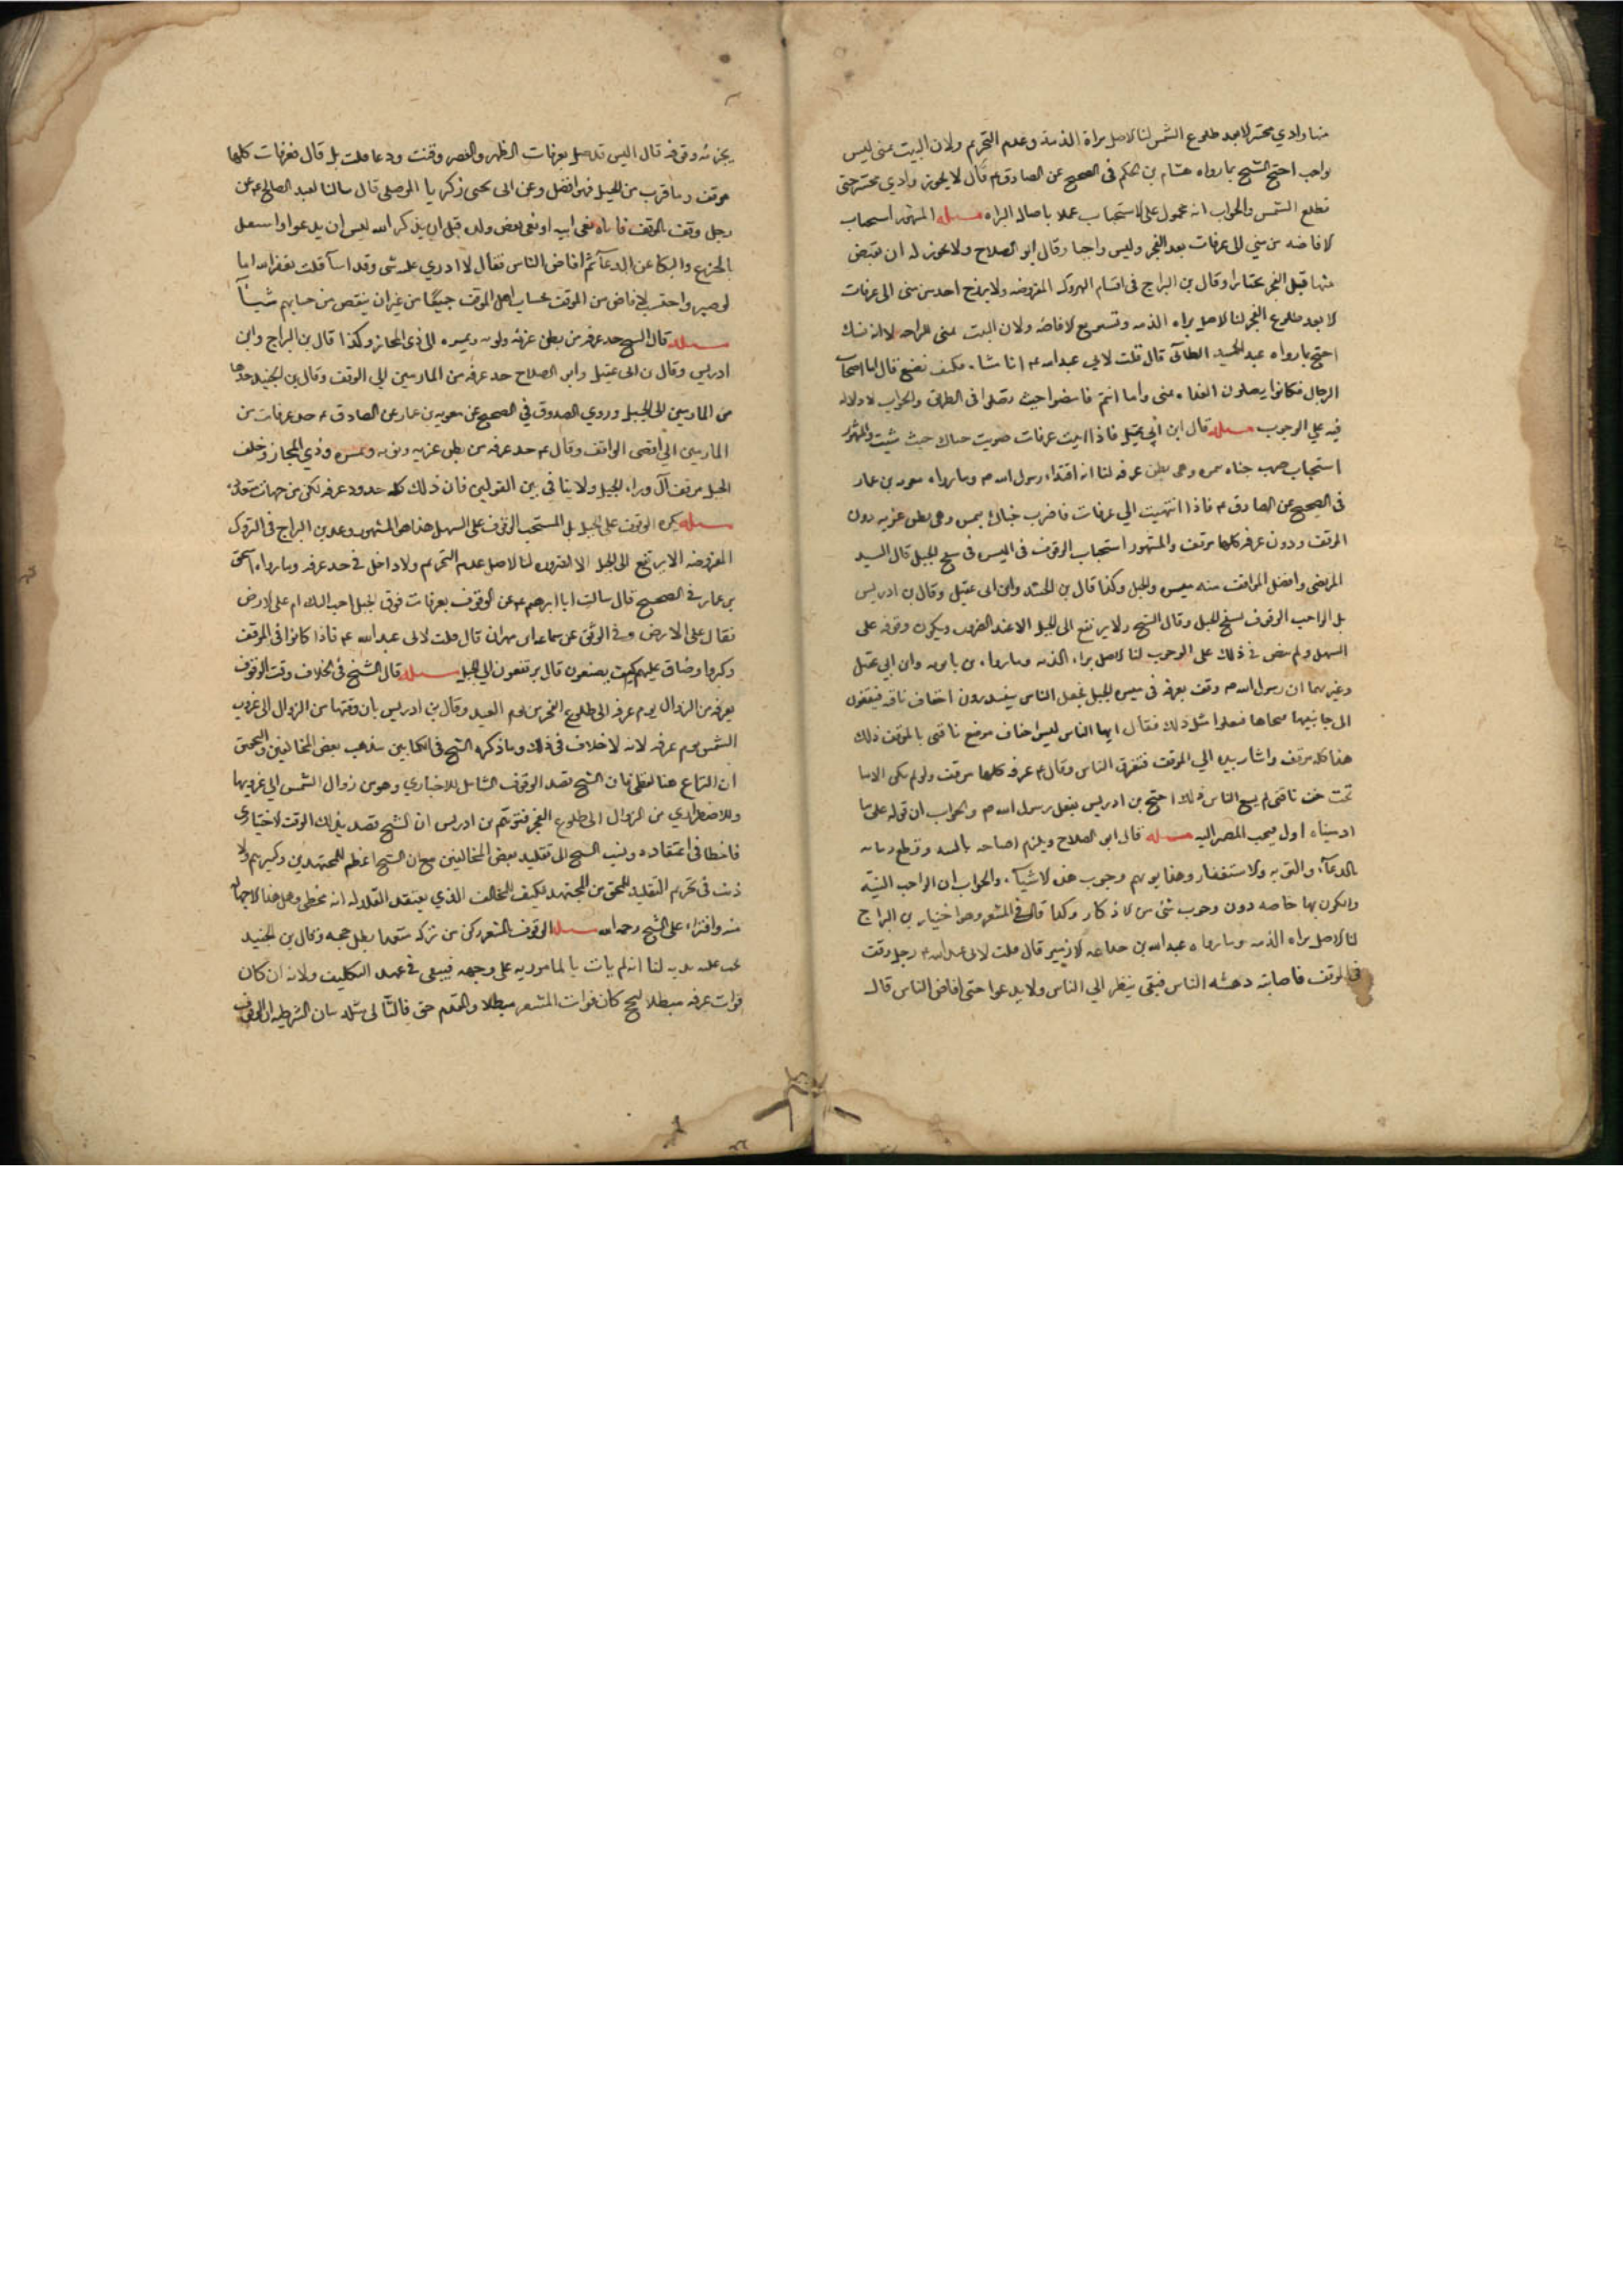 منها وادي محسر الا بعد طلوع الشمس لنا الاصل براة الذمة وعدم التحريم ولان المبيت بمنى ليس
بواجب احتج الشيخ بما رواه هشام بن الحكم في الصحيح عن الصادق ع قال لا يجوز وادي محسر حتى
تطلع الشمس والجواب انه محمول على الاستحباب عملا باصالة البراه مسله المشهور استحباب
الافاضه من منى الى عرفات بعد الفجر وليس واجبا وقال ابو الصلاح ولا يجوز له ان يفيض
منها قبل الفجر مختارا وقال بن البراج في اقسام التروك المفروضه ولا يخرج احد من منى الى عرفات
الا بعد طلوع الفجر لنا الاصل براه الذمه وتسويغ الافاضه ولان المبيت بمنى للراحه لا انه نسك
احتج بما رواه عبد الحميد الطائي قال قلت لابي عبد الله ع انا مشاه فكيف نصنع فقال اما اصحاب
الرحال فكانوا يصلون الغداه بمنى واما انتم فامضوا حيث تصلوا في الطريق والجواب لا دلاله
فيه على الوجوب مسله قال ابن أبي عقيل فاذا اتيت عرفات ضربت خباك حيث شيت والمشهور
استحباب ضرب خباه بنمره وهي بطن عرنه لنا انه اقتداء برسول الله ص وما رواه معويه بن عمار
في الصحيح عن الصادق ع فاذا انتهيت الي عرفات فاضرب خباك بنمره وهي بطن عرنه دون
الموقف ودون عرفه كلها موقف والمشهور استحباب الوقوف في الميسره في سفح الجبل قال السيد
المرتضى وافضل المواقف منه ميسره الجبل وكذا قال بن الجنيد وابن ابي عقيل وقال بن ادريس
بل الواجب الوقوف بسفح الجبل وقال الشيخ ولا يرتفع الى الجبل الا عند الضروره ويكون وقوفه على
السهل ولم ينص في ذلك على الوجوب لنا الاصل براه الذمه وما رواه بن بابويه وابن ابي عقيل
وغيرهما ان رسول الله ص وقف بعرفه في ميسره الجبل فجعل الناس يبتدرون اخفاف ناقته فيقفون
الى جانبها فنحاها ففعلوا مثل ذلك فقال ايها الناس ليس اخفاف موضع ناقتي بالموقف ذلك
هذا كله موقف واشار بيده الي الموقف فتفرق الناس وقال ع عرفه كلها موقف ولو لم يكن الا ما
تحت خف ناقتي لم يسع الناس ذلك احتج بن ادريس بفعل رسول الله ص والجواب ان قوله على ما
اوسيناه اول فيجب المصير اليه مسله قال ابو الصلاح ويلزم افتتاحه بالنيه وقطع زمانه
بالدعاء والتوبه والاستغفار وهذا يوهم وجوب هذه الاشياء والجواب ان الواجب النيه
والكون بها خاصه دون وجوب شئ من الاذكار وكذا قال في المشعر وهو اختيار بن البراج
لنا الاصل براه الذمه وما رواه عبد الله بن جذاعه الازدي قال قلت لابي عبد الله ع رجل وقف
في الموقف فاصابته دهشه الناس فبقي ينظر الي الناس ولا يدعوا حتى افاض الناس قال
يجزئه وقوفه قال اليس قد صلى بعرفات الظهر والعصر وقنت ودعا قلت بلى قال فعرفات كلها
موقف وما قرب من الجبل فهو افضل وعن ابي يحيى زكريا الموصلي قال سالت العبد الصالح ع عن
رجل وقف بالموقف فاتاه نعى ابيه او نعى بعض ولده قبل ان يذكر الله بشئ او يدعوا واشتغل
بالجزع والبكا عن الدعاء ثم افاض الناس فقال لا ادري عليه شى وقد اساء فليستغفر الله اما
لو صبر واحتسب لافاض من الموقف بحسنات اهل الموقف جميعا من غير ان ينقص من حسناتهم شيئا
مسله قال الشيخ حد عرفه من بطن عرنه وثويه ونمره الى ذي المجاز وكذا قال بن البراج وابن
ادريس وقال بن ابي عقيل وابو الصلاح حد عرفه من المازمين الي الموقف وقال بن الجنيد حدها
من المازمين الى الجبل وروي الصدوق في الصحيح عن معويه بن عمار عن الصادق ع حد عرفات من
المازمين الي اقصى الموقف وقال ع حد عرفه من بطن عرنه وثويه ونمره وذي المجاز وخلف
الجبل موقف الي وراء الجبل ولا ينافي بين القولين فان ذلك كله حدود عرفه لكن من جهات متعدده
مسله يكره الوقوف على الجبل بل المستحب الوقوف على السهل هذا هو المشهور وعد بن البراج في التروك
المفروضه الا يرتفع الى الجبل الا لضروره لنا الاصل عدم التحريم ولانه داخل في حد عرفه وما رواه اسحق
بن عمار في الصحيح قال سالت ابا ابرهيم ع عن الوقوف بعرفات فوق الجبل احب اليك ام على الارض
فقال على الارض وفي الموثق عن سماعه بن مهران قال قلت لابي عبد الله ع فاذا كانوا في الموقف
وكثروا وضاق عليهم كيف يصنعون قال يرتفعون الي الجبل مسله قال الشيخ في الخلاف وقت الوقوف
بعرفه من الزوال يوم عرفه الى طلوع الفجر من يوم العيد وقال بن ادريس بان وقتها من الزوال الى غروب
الشمس يوم عرفه لانه لا خلاف في ذلك وما ذكره الشيخ في الكتابين مذهب بعض المخالفين والتحقيق
ان النزاع هنا لفظي فان الشيخ قصد الوقوف الشامل للاختياري وهو من زوال الشمس الي غروبها
وللاضطراري من الزوال الى طلوع الفجر فتوهم بن ادريس ان الشيخ قصد بذلك الوقت الاختياري
فاخطا في اعتقاده ونسب الشيخ الى تقليد بعض المخالفين مع ان الشيخ اعظم المجتهدين وكبيرهم ولا
ريب في تحريم التقليد للمحق من المجتهد فكيف المخالف الذي يعتقد المقلد له انه مخطى وهل هذا الا جهاله
منه وافتراء على الشيخ رحمه الله مسله الوقوف بالمشعر ركن من تركه متعمدا بطل حجه وقال بن الجنيد
يجب عليه بدنه لنا انه لم يات بالمامور به على وجهه فيبقى في عهده التكليف ولانه ان كان
فوات عرفه مبطلا للحج كان فوات المشعر مبطلا والمقدم حق فالتالى مثله بيان الشرطيه ان الوقوف